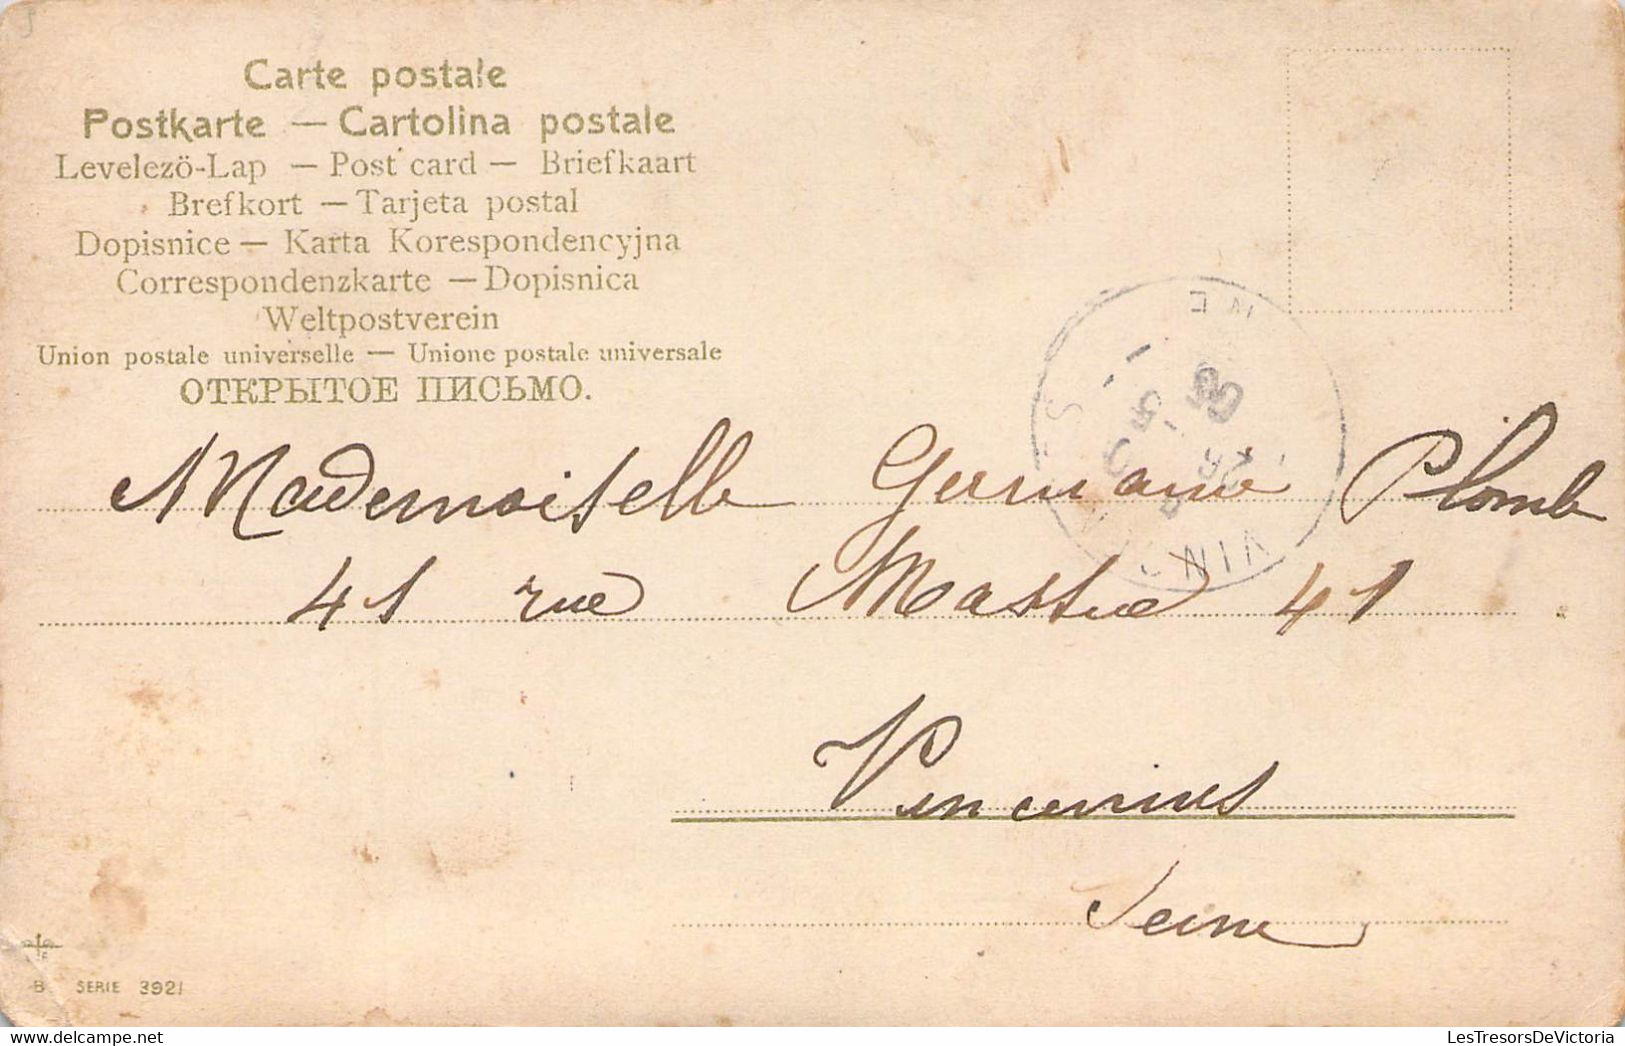 Carte postale
Postkarte — Cartolina postale
Levelezö-Lap — Post card — Briefkaart
Brefkort — Tarjeta postal
Dopisnice — Karta Korespondencyjna
Correspondenzkarte — Dopisnica
Weltpostverein
Union postale universelle — Unione postale universale
ОТКРЫТОЕ ПИСЬМО.
Mademoiselle Germaine Plomb
41 rue 41
Vincennes
Seine
B SERIE 3921
LesTresorsDeVictoria
delcampe.net